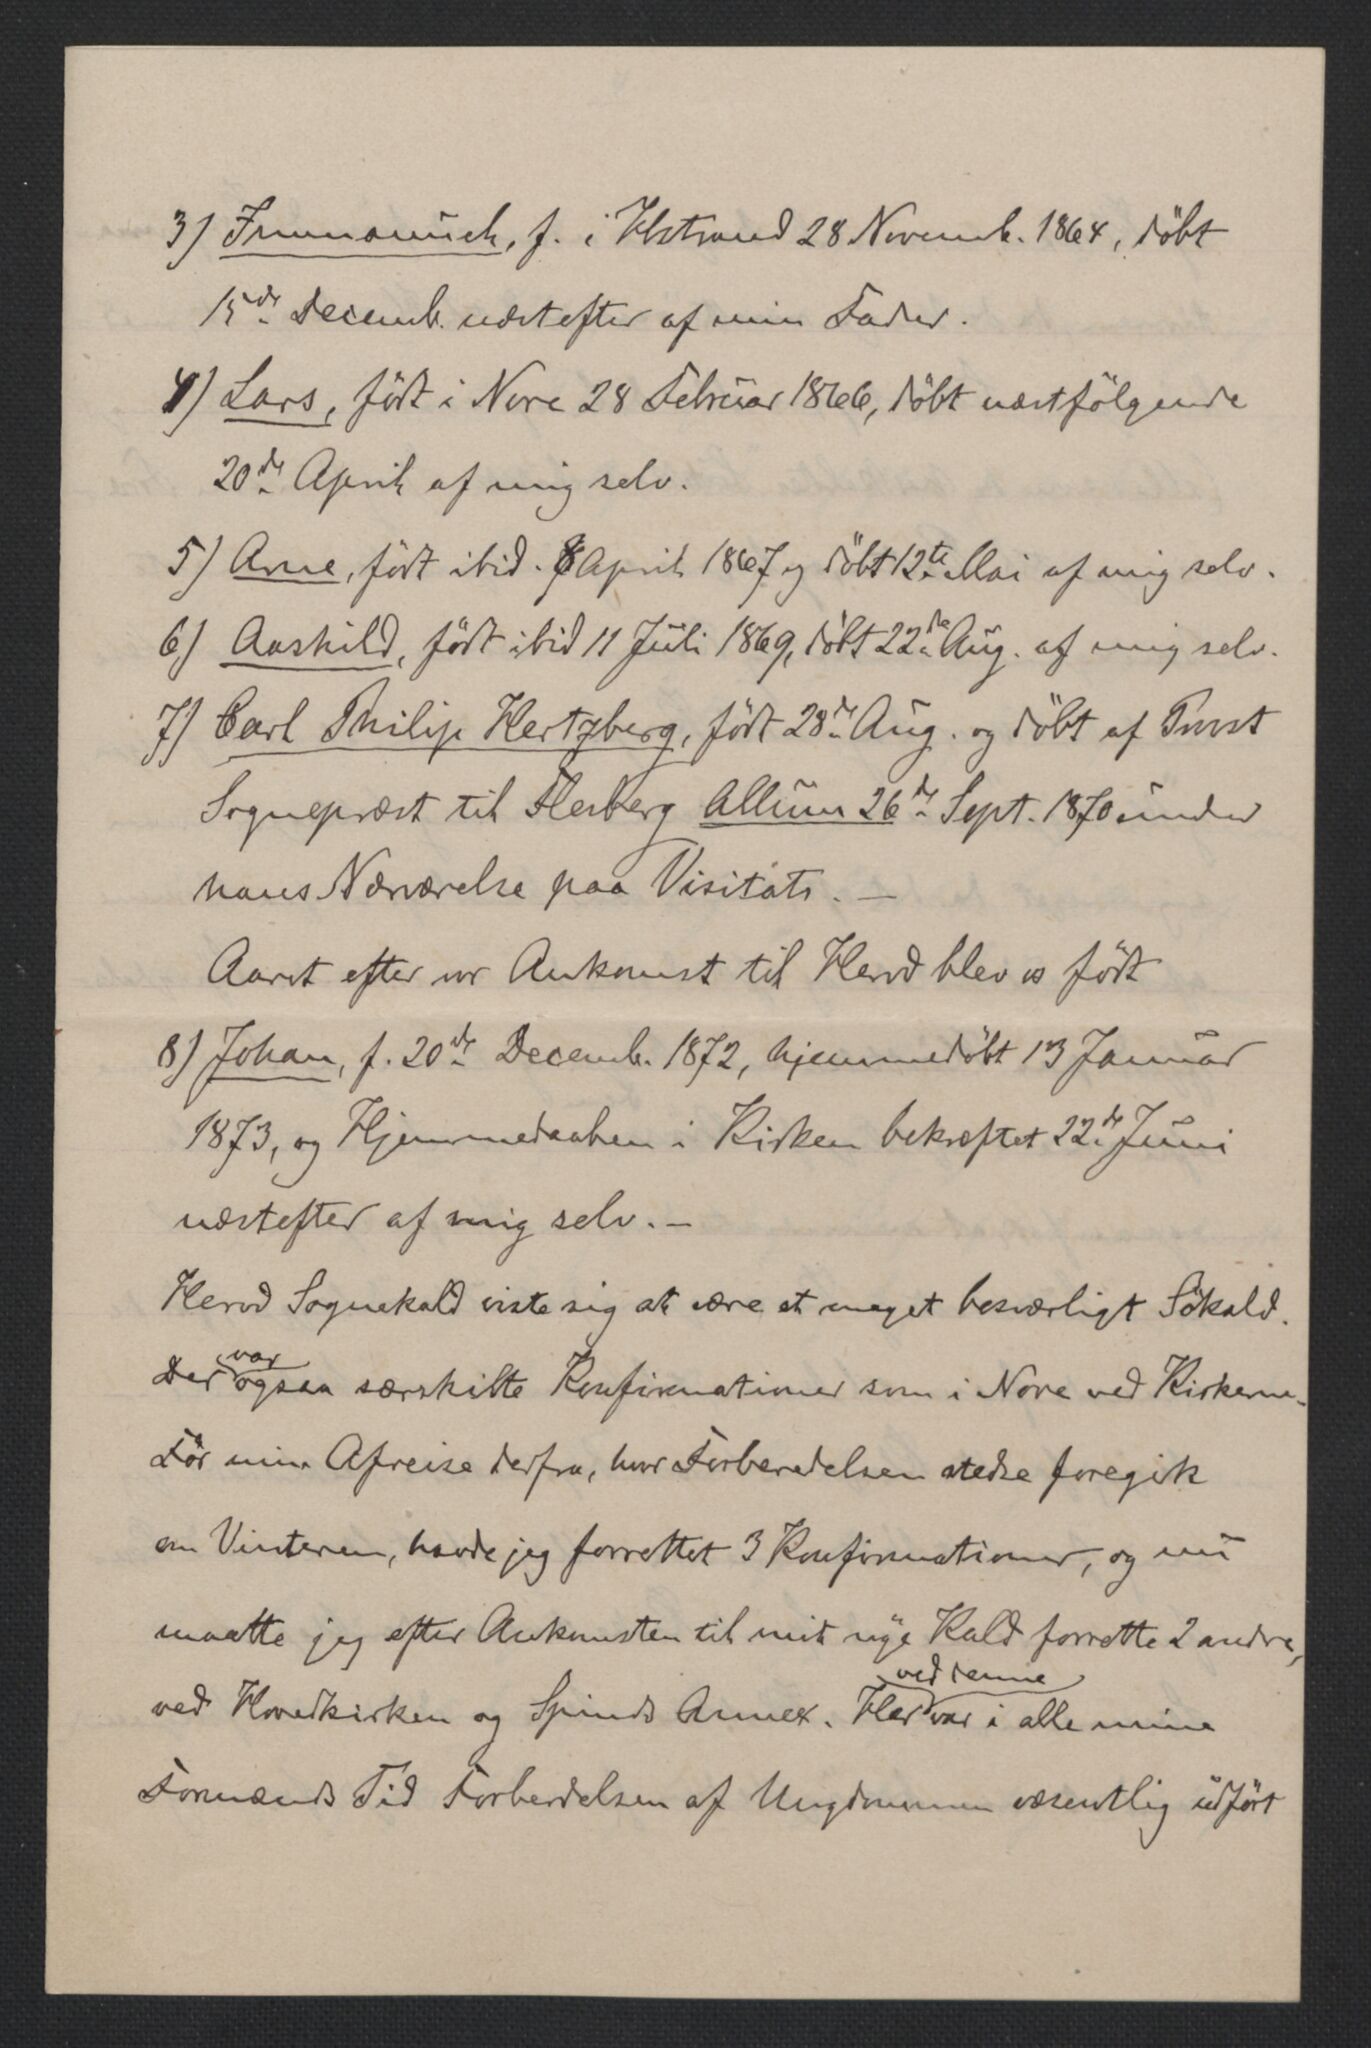 3) Immanuel, f. i Ullstrand 28 Novemb. 1864, döbt
15de Decemb. næstefter af min Fader.
4) Lars, födt i Nore 28 Februar 1866, döbt næstfölgende
20de April af mig selv.
5) Arne, födt ibid. 8 April 1867 og döbt 12te Mai af mig selv.
6) Aashild, födt ibid 11 Juli 1869, döbt 22de Aug. af mig selv.
7) Carl Philip Hertzberg, födt 28de Aug. og döbt af Provst
Sognepræst til Flesberg Allum 26de Sept. 1870 under
hans Nærværelse paa Visitats. —
Aaret efter vor Ankomst til Herod blev os födt
8) Johan, f. 20de Decemb. 1872, hjemmedöbt 13 Januar
1873, og Hjemmedaaben i Kirken bekræftet 22de Juni
næstefter af mig selv. —
Herod Sognekald viste sig at være et meget besværligt Sökald.
Der var ogsaa særskilte Konfirmationer som i Nore ved Kirkerne.
För min Afreise derfra, hvor Forberedelsen stedse foregik
om Vinteren, havde jeg forrettet 3 Konfirmationer, og nu
maatte jeg efter Ankomsten til mit nye Kald forrette 2 andre,
ved Hovedkirken og Spinds Annex. Her ved denne var i alle mine
Formænds Tid Forberedelsen af Ungdommen væsentlig udfört